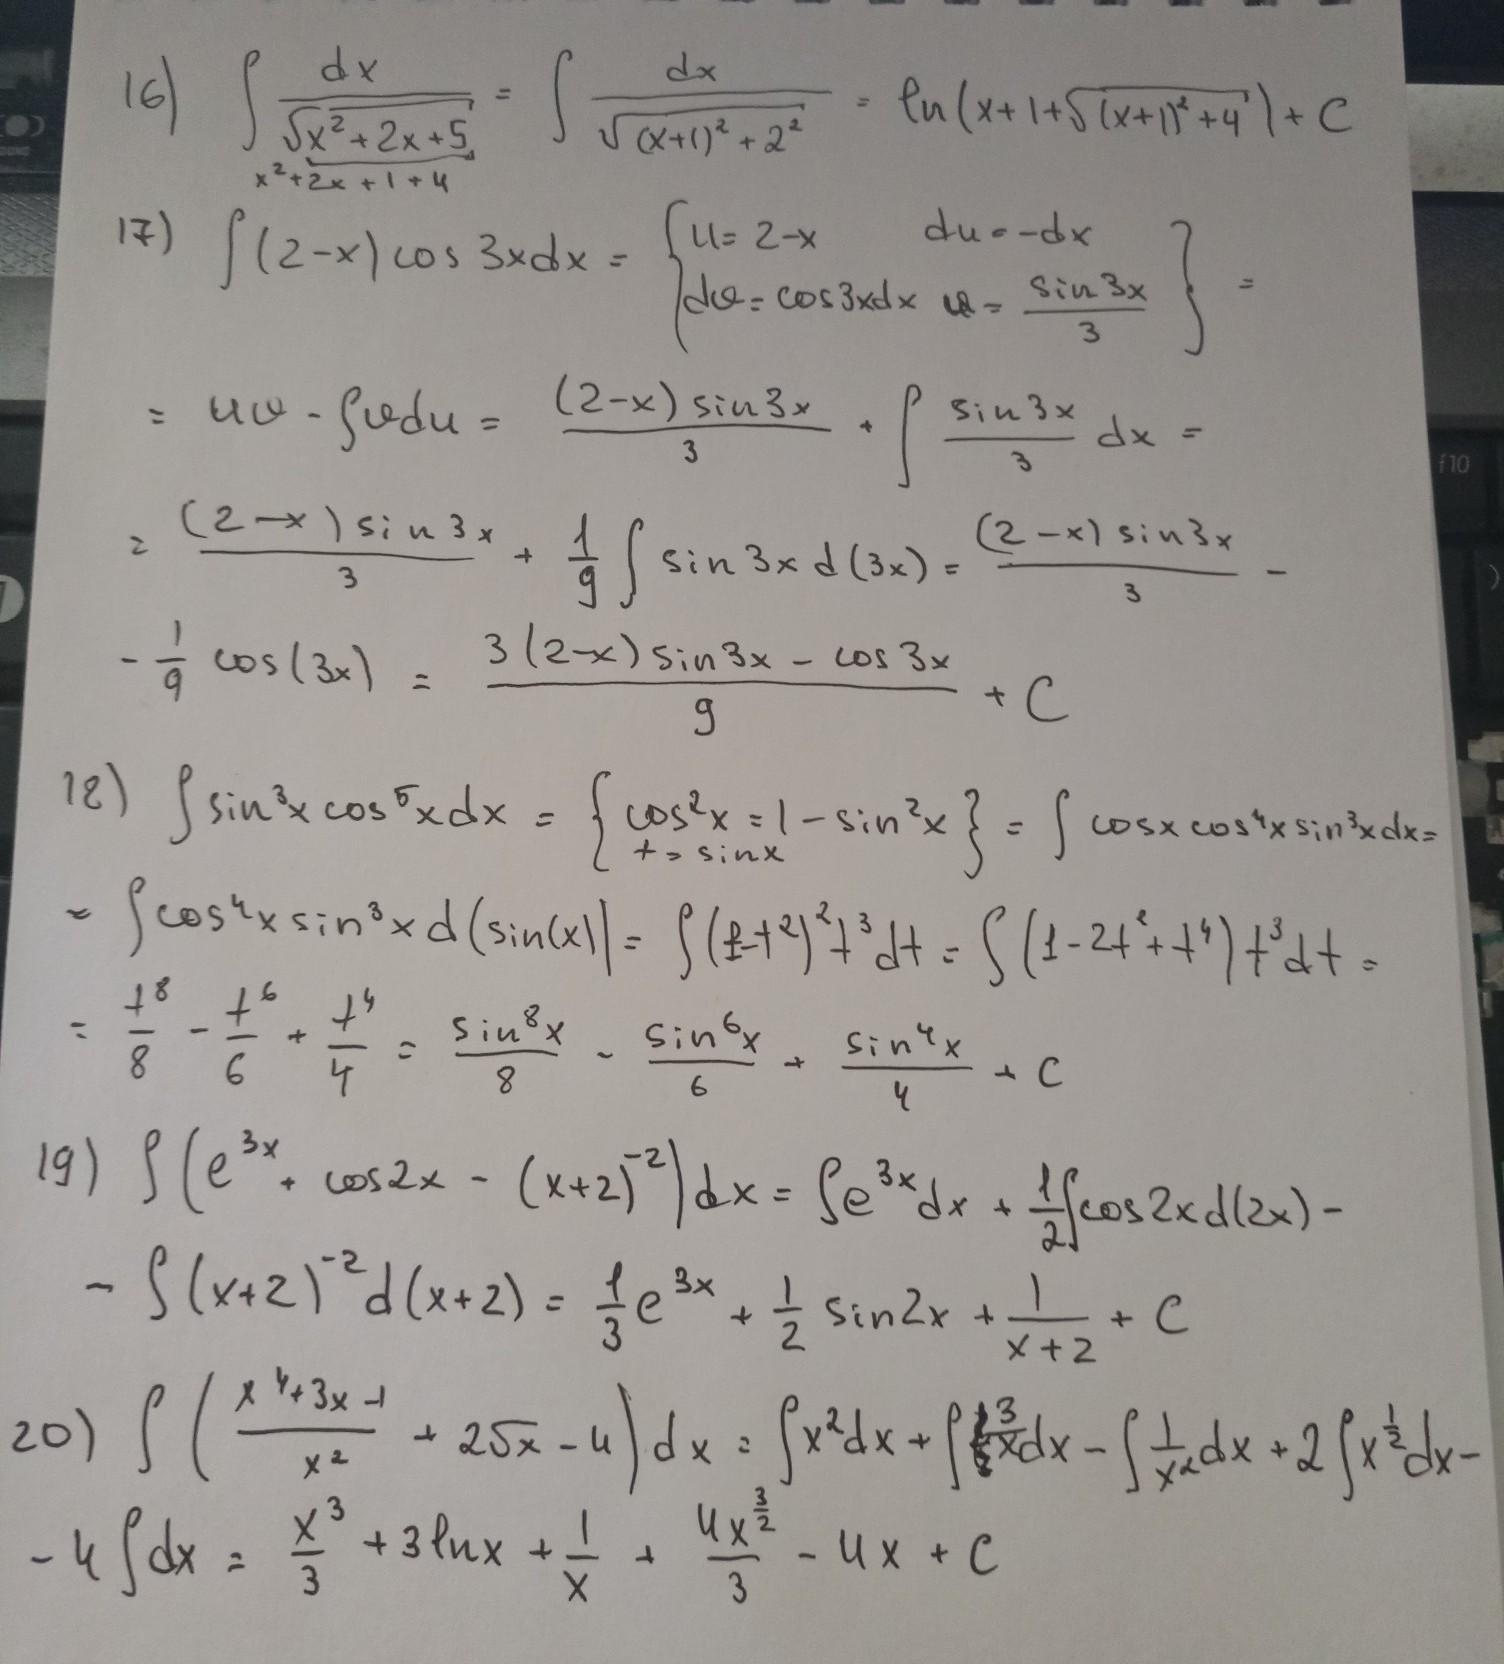 16) ∫ dx/√(x²+2x+5) = ∫ dx/√((x+1)²+2²) = ln(x+1+√((x+1)²+4)) + C
x²+2x+1+4
17) ∫(2-x) cos 3xdx = { u = 2-x du = -dx
dv = cos3xdx v = sin 3x/3 } =
= uv - ∫vdu = (2-x) sin3x/3 + ∫ sin 3x/3 dx =
= (2-x) sin 3x/3 + 1/9 ∫ sin 3x d(3x) = (2-x) sin3x/3 -
- 1/9 cos(3x) = (3(2-x) sin3x - cos 3x)/9 + C
18) ∫ sin³x cos⁵x dx = { cos²x = 1 - sin²x } = ∫ cosx cos⁴x sin³x dx =
t = sinx
= ∫ cos⁴x sin³x d(sin(x)) = ∫(1-t²)² t³dt = ∫(1-2t²+t⁴) t³dt =
= t⁸/8 - t⁶/6 + t⁴/4 = sin⁸x/8 - sin⁶x/6 + sin⁴x/4 + C
19) ∫(e³ˣ + cos2x - (x+2)⁻²)dx = ∫e³ˣdx + 1/2 ∫cos2xd(2x) -
- ∫(x+2)⁻² d(x+2) = 1/3 e³ˣ + 1/2 sin2x + 1/(x+2) + C
20) ∫((x⁴+3x-1)/x² + 2√x - 4)dx = ∫x²dx + ∫3/x dx - ∫1/x² dx + 2∫x^(1/2) dx -
- 4∫dx = x³/3 + 3lnx + 1/x + 4x^(3/2)/3 - 4x + C
f10